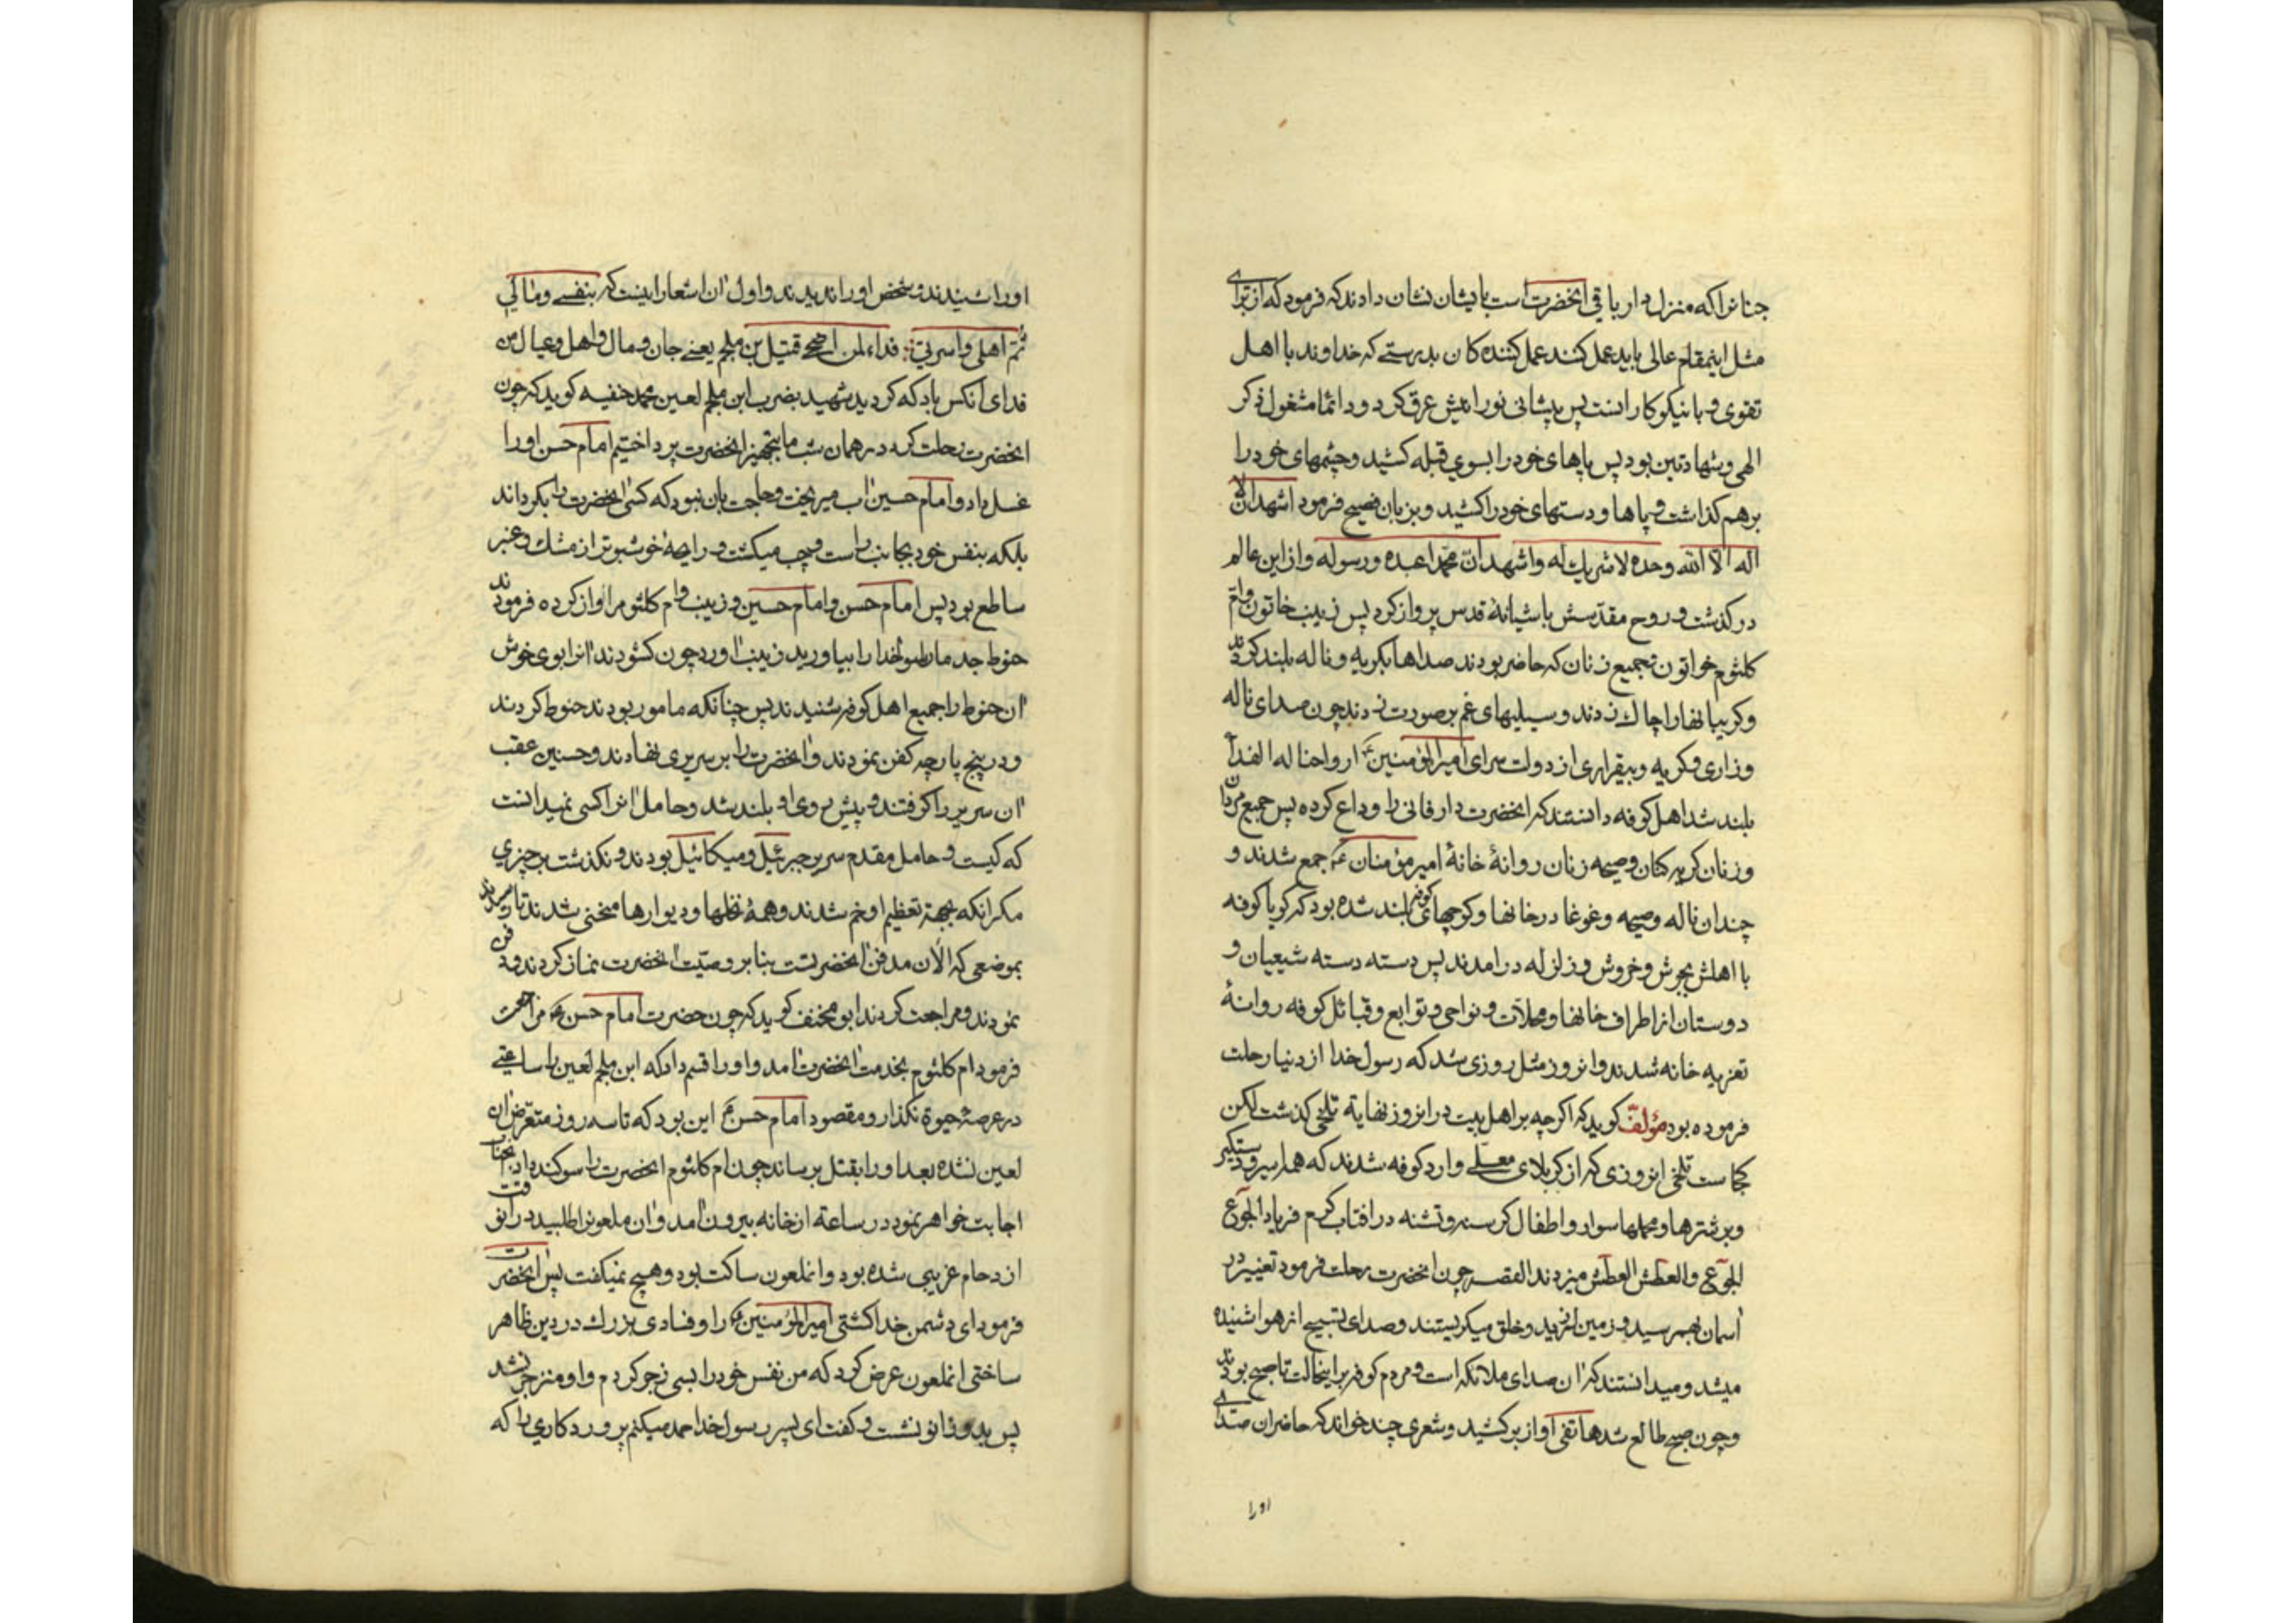 جنانرا که منزل دار باقی انحضرت است بایشان نشان دادند که فرمود که از برای
مثل اینمقام عالی باید عمل کنند عمل کننده کان بدرستے که خداوند با اهل
تقوی و با نیکوکارانست پس پیشانی نورانیش عرق کرد و دائما مشغول ذکر
الهی و شهادتین بود پس پاهای خود را بسوی قبله کشید و چشمهای خود را
برهم گذاشت و پاها و دستهای خود را کشید و بزبان فصیح فرمود اشهد ان لا
اله الا الله وحده لا شریك له و اشهد ان محمدا عبده و رسوله و از این عالم
درگذشت و روح مقدسش باشیانهٔ قدس پرواز کرد پس زینب خاتون و ام
کلثوم خواتون و جمیع زنان که حاضر بودند صداها بگریه و ناله بلند کردند
و گریبانها را چاك زدند و سیلیهای غم بر صورت زدند چون صدای ناله
و زاری و گریه و بیقراری از دولت سرای امیرالمؤمنین ع ارواحنا له الفدا
بلند شد اهل کوفه دانستند که انحضرت دار فانی را وداع کرده پس جمیع مردان
و زنان گریه کنان و صیحه زنان روانهٔ خانهٔ امیر مؤمنان ع جمع شدند و
چندان ناله و صیحه و غوغا در خانها و کوچهای کوفه بلند شده بود که گویا کوفه
با اهلش بجوش و خروش و زلزله در امدند پس دسته دسته شیعیان و
دوستان از اطراف خانها و محلات و نواحی و توابع و قبائل کوفه روانهٔ
تعزیه خانه شدند و انروز مثل روزی شد که رسول خدا از دنیا رحلت
فرموده بود مؤلف گوید که اگرچه بر اهل بیت در انروز نهایة تلخی گذشت لکن
کجاست تلخی انروزی که از کربلای معلے وارد کوفه شدند که همه اسیر و دستگیر
و بر شترها و محملها سوار و اطفال گرسنه و تشنه در افتاب گرم فریاد الجوع
الجوع و العطش العطش میزدند القصه چون انحضرت رحلت فرمود تغییر در
اسمان بهم رسید و زمین لرزید و خلق میگریستند و صدای تسبیح از هوا شنیده
میشد و میدانستند که ان صدای ملائکه است و مردم کوفه بر اینحالت تا صبح بودند
و چون صبح طالع شد هاتفی اواز برکشید و شعری چند خواند که حاضران صدای
اورا
اورا شنیدند و شخص اورا ندیدند و اول ان اشعار اینست که بنفسے و مالی
ثم اهلی و اسرتی فداء لمن اضحے قتیل بن ملجم یعنے جان و مال و اهل و عیال من
فدای انکس باد که گردید شهید بضرب ابن ملجم لعین محمد حنفیه گوید که چون
انحضرت رحلت کرد در همان شب ما بتجهیز انحضرت پرداختیم امام حسن اورا
غسل داد و امام حسین اب میریخت و حاجت بان نبود که کسی انحضرت را بگرداند
بلکه بنفس خود بجانب راست و چپ میگشت و رایحهٔ خوشبوتر از مشك و عنبر
ساطع بود پس امام حسن و امام حسین و زینب و ام کلثوم را اواز کرده فرمودند
حنوط جد ما رسولخدا را بیاورید زینب اورد چون گشودند انرا بوی خوش
ان حنوط را جمیع اهل کوفه شنیدند پس چنانکه مامور بودند حنوط کردند
و در پنج پارچه کفن نمودند و انحضرت را بر سریری نهادند و حسنین عقب
ان سریر را گرفتند و پیش روی او بلند شد و حامل انرا کسی نمیدانست
که کیست و حامل مقدم سریر جبرئیل و میکائیل بودند و نگذشت بر چیزی
مگر انکه بجهة تعظیم او خم شدند و همهٔ نخلها و دیوارها منحنی شدند تا رسیدند
بموضعی که الان مدفن انحضرتست بنا بر وصیت انحضرت نماز کردند و دفن
نمودند و مراجعت کردند ابومخنف گوید که چون حضرت امام حسن ع مراجعت
فرمود ام کلثوم بخدمت انحضرت امد و اورا قسم داد که ابن ملجم لعین را ساعتے
در عرصهٔ حیوة نگذارد و مقصود امام حسن ع این بود که تا سه روز متعرض ان
لعین نشده بعد اورا بقتل برساند چون ام کلثوم انحضرت را سوگند داد انجناب
اجابت خواهر نمود در ساعة از خانه بیرون امد و ان ملعون را طلبید در انوقت
ازدحام غریبی شده بود و انملعون ساکت بود و هیچ نمیگفت پس انحضرت
فرمود ای دشمن خدا کشتی امیرالمؤمنین ع را و فسادی بزرك در دین ظاهر
ساختی انملعون عرض کرد که من نفس خود را بسی زجر کردم و او منزجر نشد
پس بدو زانو نشست و گفت ای پسر رسول خدا حمد میکنم پروردکاری را که